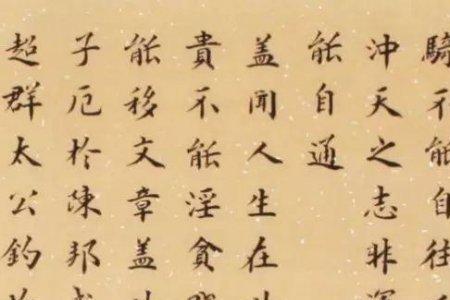 騎不能自往
冲天之志非
能自通
盖聞人生在
貴不能淫貧
能移文章盖
子厄於陳邦
超群太公釣